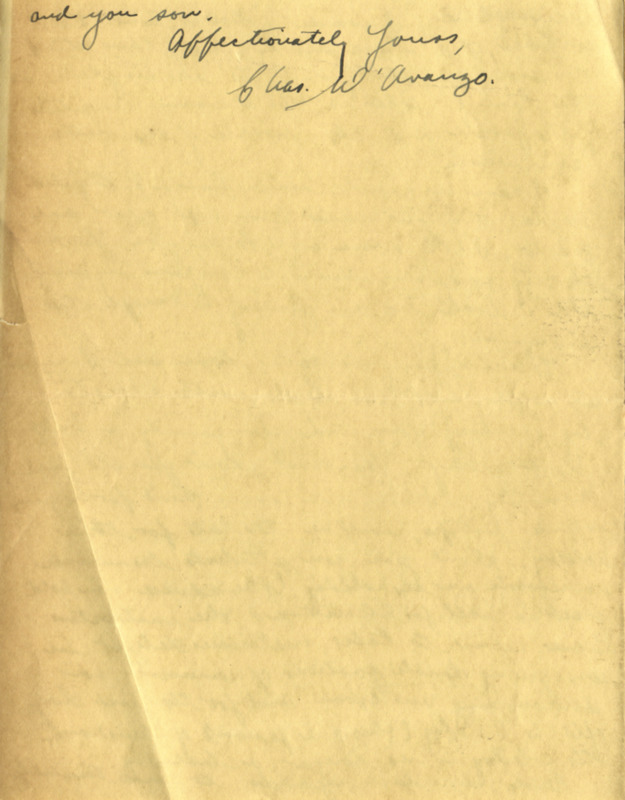 and you son.
Affectionately Yours,
Chas. D'Avanzo.